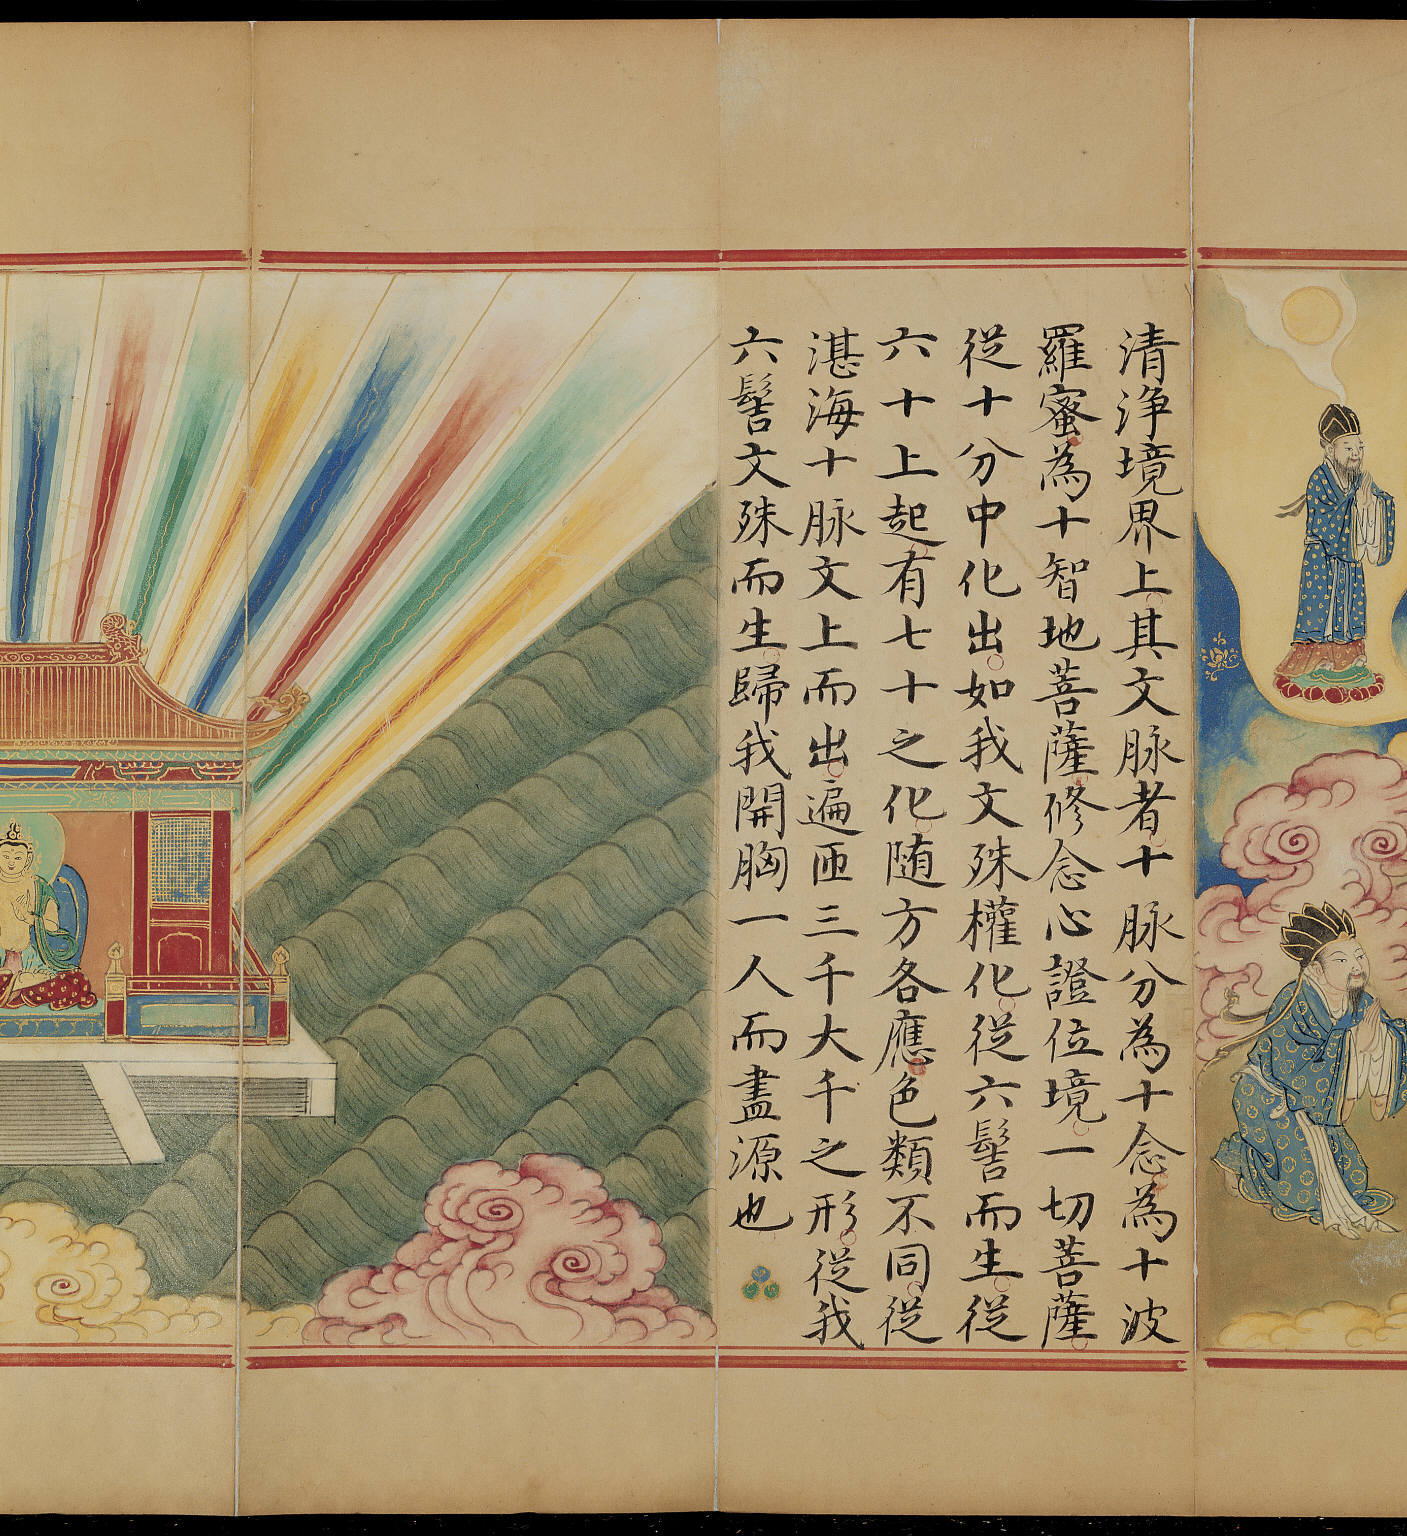 清淨境界上其文脉者十脉分為十念為十波
羅蜜為十智地菩薩修念心證位境一切菩薩
從十分中化出如我文殊權化從六髻而生從
六十上起有七十之化随方各應色類不同從
湛海十脉文上而出遍匝三千大千之形從我
六髻文殊而生歸我開胸一人而盡源也